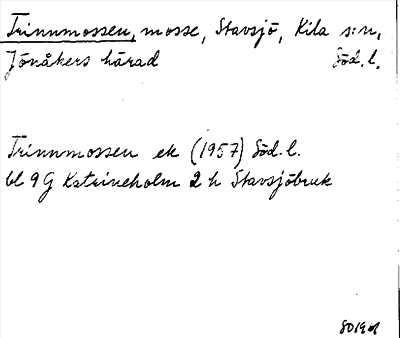 Trinnmossen, mosse, Stavsjö, Kila s:n,
Jönåkers härad Söd. l.
Trinnmossen ek (1957) Söd. l.
bl 9 G Katrineholm 2 h Stavsjöbruk